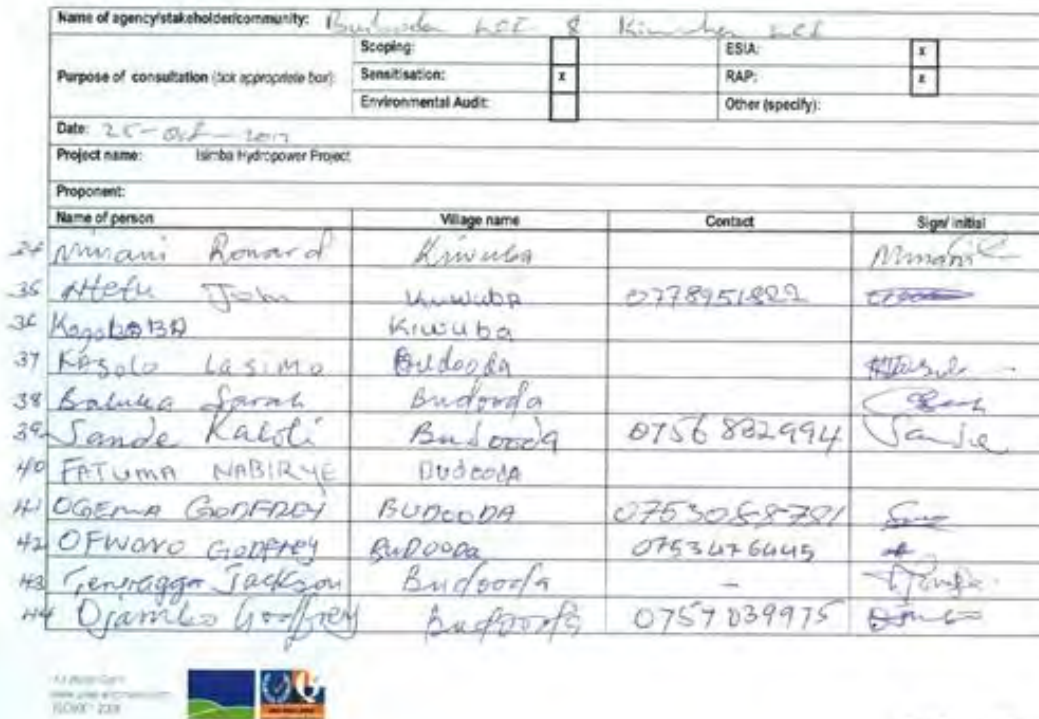 Name of agency/stakeholder/community: Budooda LCI & Kiwuba LCI
Scoping: ESIA: x
Purpose of consultation (tick appropriate box): Sensitisation: x RAP: x
Environmental Audit: Other (specify):
Date: 25-Oct-
Project name: Isimba Hydropower Project
Proponent:
Name of person Village name Contact Sign/ initial
Minani Ronard Kiwuba Minani
35 John Kuwuba
36 Kiwuba
37 Kasolo Lasimo Budooda
38 Baluka Sarah Budooda
39 Sande Kaloli Budooda 0756 802994 Sande
40 FATUMA NABIRYE BUDOODA
41 OGEMA GODFREY BUDOODA
42 OFWONO GODFREY BUDOODA
43 Jackson Budooda -
44 Ojambo Godfrey Budooda 0757039975